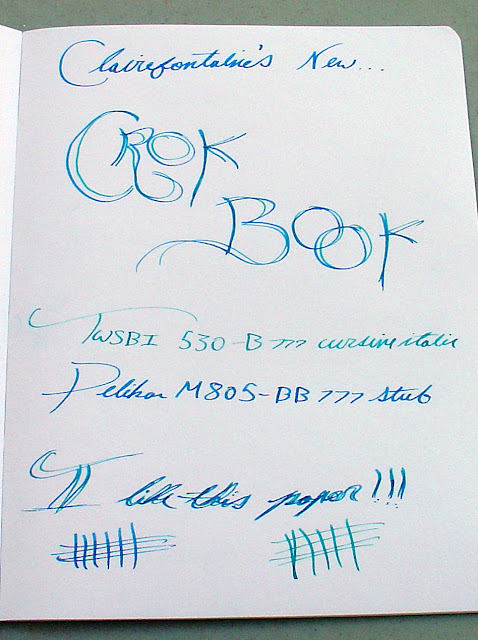 Clairefontaine's New...
CROK
BOOK
TWSBI 530-B >>> cursive italic
Pelikan M805-BB >>> stub
I like this paper!!!